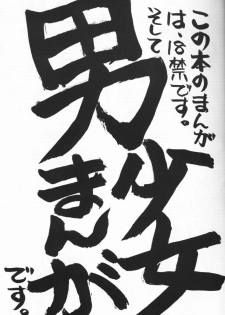 この本のまんが
は、18禁です。
そして
少女
男まんが
です。